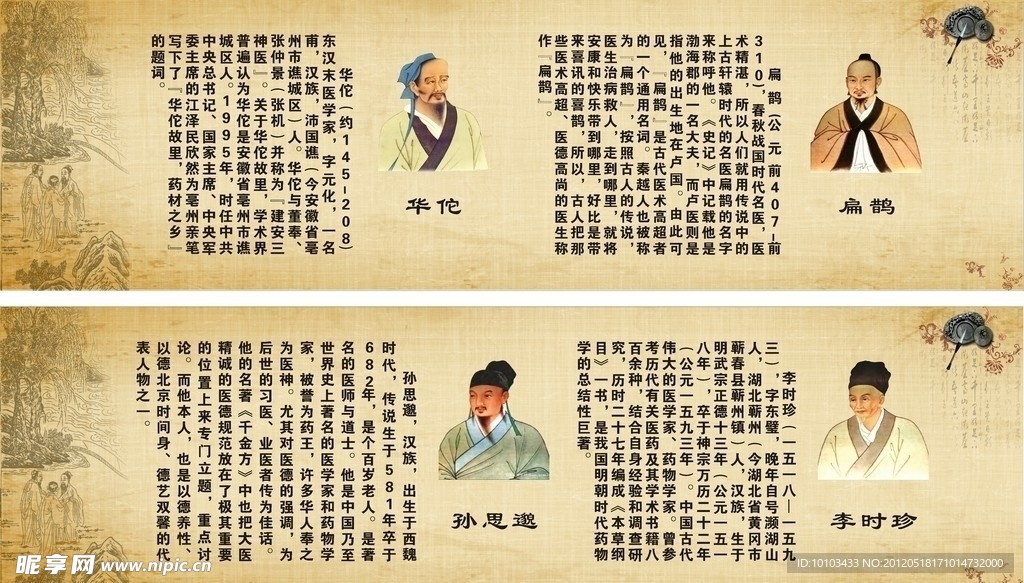 扁鹊
扁鹊(公元前407—前
310),春秋战国时代名医,医
术精湛,所以人们就用传说中的
上古轩辕时代的名医扁鹊的名字
来称呼他。《史记》中记载他是
渤海郡的一名大夫,而卢医则是
指他的出生地在卢国。由此可
见,『扁鹊』是古代医术高超者
的一个通用名词。秦越人也被称
为『扁鹊』,按照古人的传说,
医生治病救人,走到哪里,就将
安康和快乐带到哪里,好比是带
来喜讯的喜鹊,所以,古人把那
些医术高超、医德高尚的医生称
作『扁鹊』。
华佗
华佗(约145-208)
东汉末医学家,字元化,一名
甫,汉族,沛国谯(今安徽省亳
州市谯城区)人。华佗与董奉、
张仲景(张机)并称为『建安三
神医』。关于华佗故里,学术界
普遍认为华佗是安徽省亳州市谯
城区人。1995年,时任中共
中央总书记、国家主席、中央军
委主席的江泽民欣然为亳州亲笔
写下了『华佗故里,药材之乡』
的题词。
李时珍
李时珍(一五一八—一五九
三),字东璧,晚年自号濒湖山
人,湖北蕲州(今湖北省黄冈市
蕲春县蕲州镇)人,汉族,生于
明武宗正德十三年(公元一五一
八年),卒于神宗万历二十二年
(公元一五九三年)。中国古代
伟大的医学家、药物学家。曾参
考历代有关医药及其学术书籍八
百余种,结合自身经验和调查研
究,历时二十七年编成《本草纲
目》一书,是我国明朝时代药物
学的总结性巨著。
孙思邈
孙思邈,汉族,出生于西魏
时代,传说生于581年卒于
682年,是个百岁老人。是著
名的医师与道士。他是中国乃至
世界史上著名的医学家和药物学
家,被誉为药王,许多华人奉之
为医神。尤其对医德的强调,为
后世的习医、业医者传为佳话。
他的名著《千金方》中也把大医
精诚的医德规范放在了极其重要
的位置上来专门立题,重点讨
论。而他本人,也是以德养性、
以德北京时间身、德艺双馨的代
表人物之一。
昵享网 www.nipic.cn
ID:10103433 NO:20120518171014732000